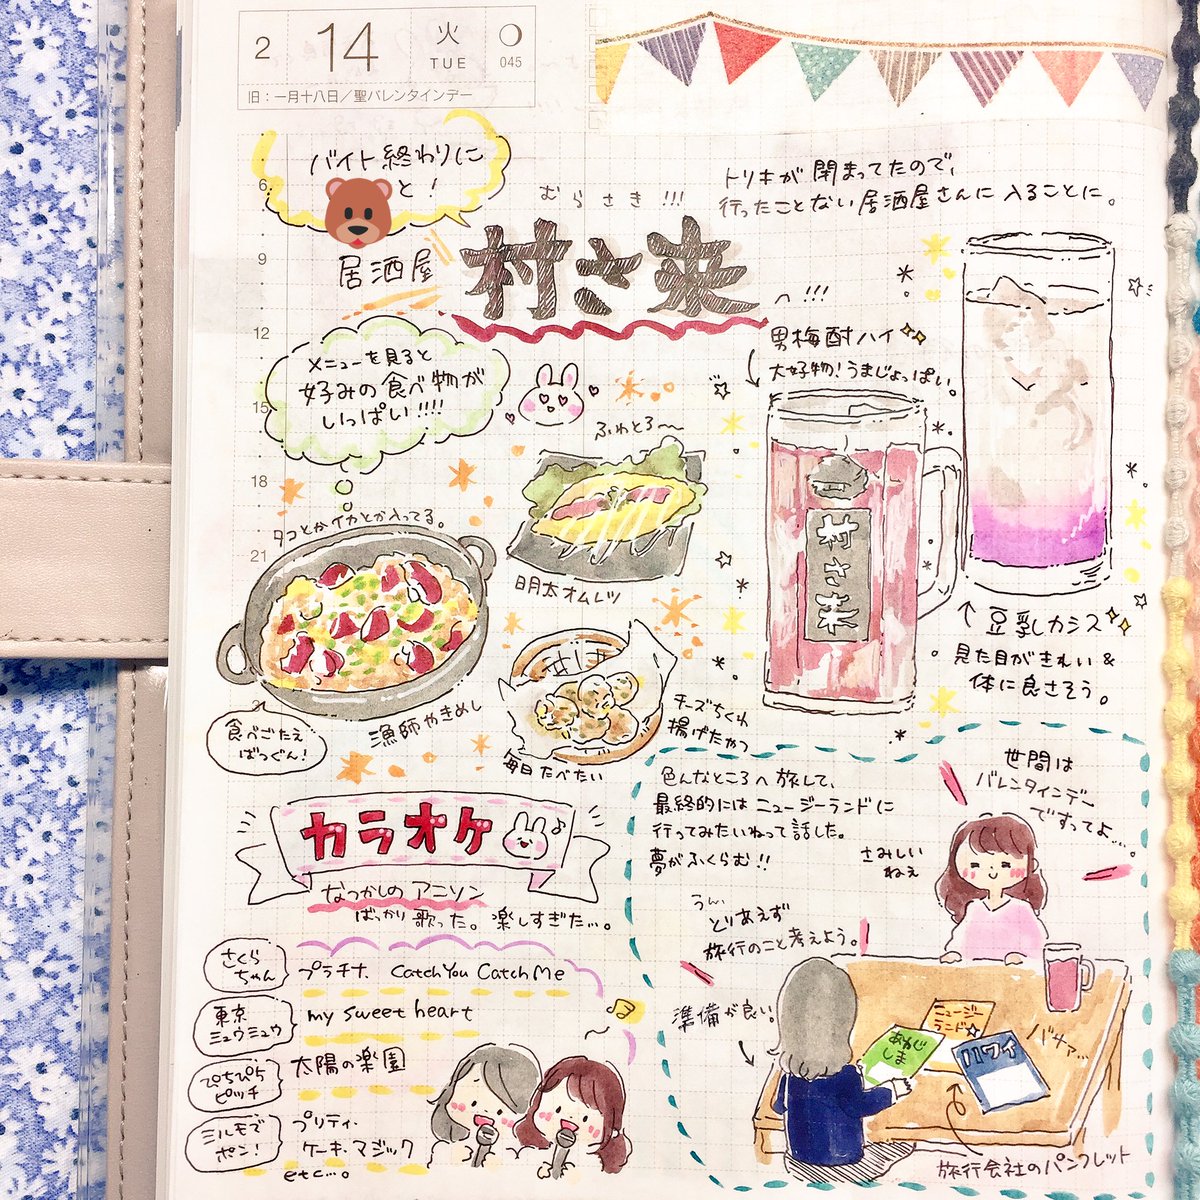 2 14 火 TUE 045
旧：一月十八日／聖バレンタインデー
バイト終わりに
と！
トリキが閉まってたので、
行ったことない居酒屋さんに入ることに。
むらさき!!!
居酒屋 村さ来 へ!!!
6
9
12
15
18
21
メニューを見ると
好みの食べ物が
いっぱい!!!!
男梅酎ハイ
大好物！うまじょっぱい。
村さ来
↑豆乳カシス
見た目がきれい&
体に良さそう。
ふわとろ～
明太オムレツ
タコとかイカとか入ってる。
食べごたえ
ばつぐん！
漁師やきめし
チーズちくわ
揚げたかつ
毎日たべたい
カラオケ♪
なつかしのアニソン
ばっかり歌った。楽しすぎた…。
さくら
ちゃん
プラチナ Catch You Catch Me
東京
ミュウミュウ
my sweet heart
ぴちぴち
ピッチ
太陽の楽園
ミルモで
ポン！
プリティ・
ケーキ・マジック
etc…。
色んなところへ旅して、
最終的にはニュージーランドに
行ってみたいねって話した。
夢がふくらむ!!
世間は
バレンタインデー
ですってよ…。
さみしい
ねぇ
うん、
とりあえず
旅行のこと考えよう。
準備が良い
ニュージー
ランド
あわじ
しま
ハワイ
バサァ…
旅行会社のパンフレット